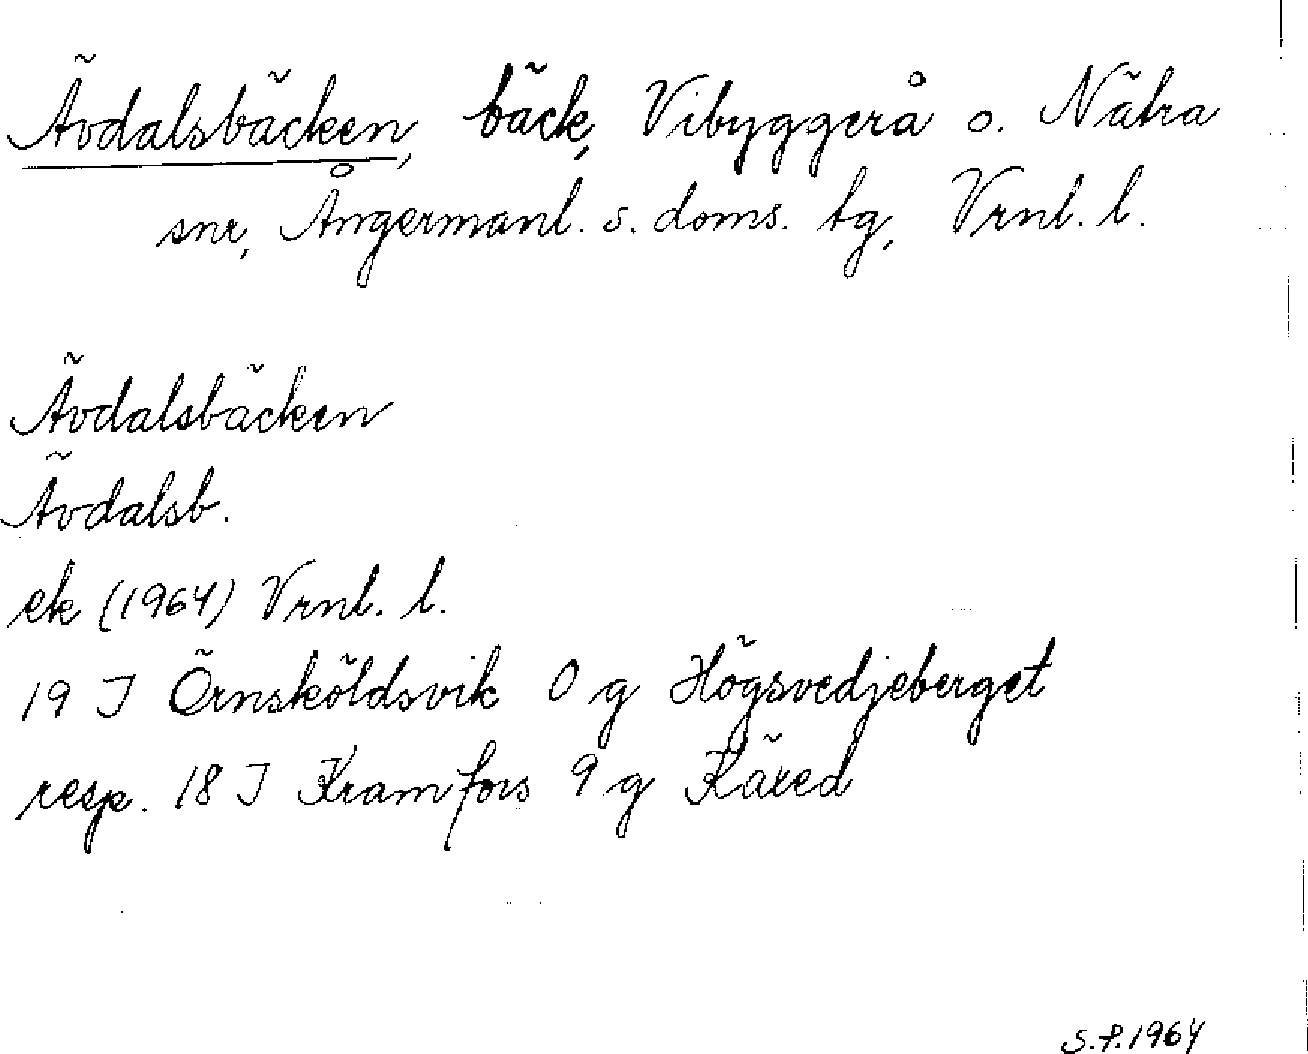 Ävdalsbäcken, bäck, Vibyggerå o. Nätra
snr, Ångermanl. s. doms. tg, Vrnl. l.
Ävdalsbäcken
Ävdalsb.
ek (1964) Vrnl. l.
19 J Örnsköldsvik 0 g Högsvedjeberget
resp. 18 J Kramfors 9 g Käxed
S.P. 1964